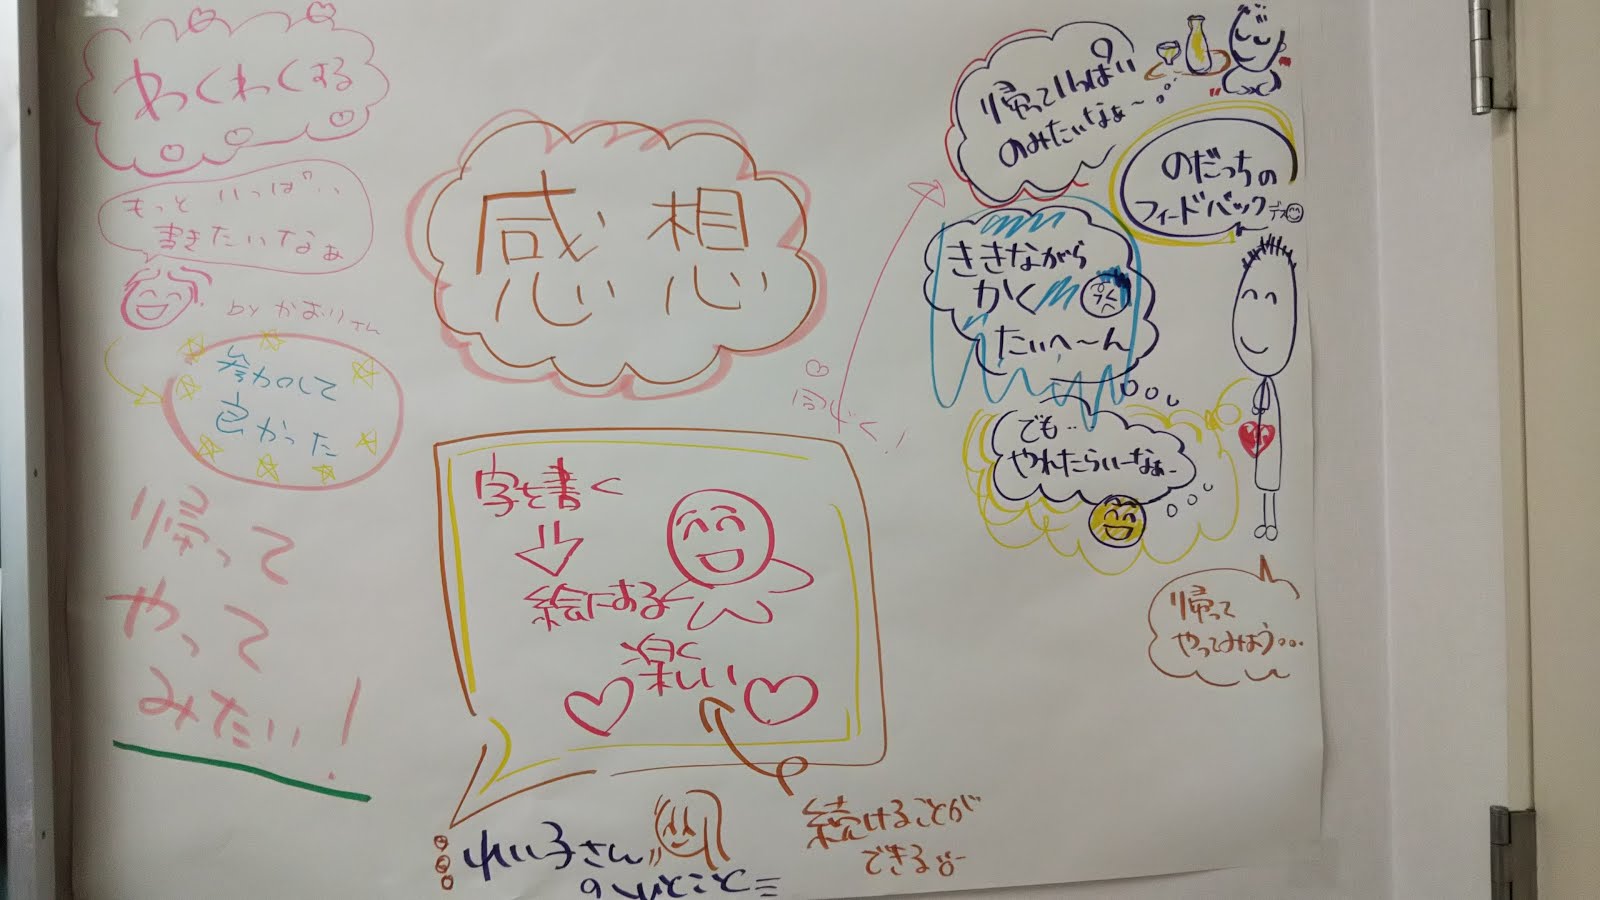 わくわくする
もっと いっぱい
書きたいなぁ
by かおりさん
参加して
良かった
帰って
やって
みたい!
感想
字を書く
絵にある
楽しい
れい子さん
のひとこと
続けることが
できる
同じく!
帰っていっぱい
のみたいなぁ〜
のだっちの
フィードバック
ききながら
かく
たいへ〜ん
でも…
やれたらいーなぁー
帰って
やってみよう…